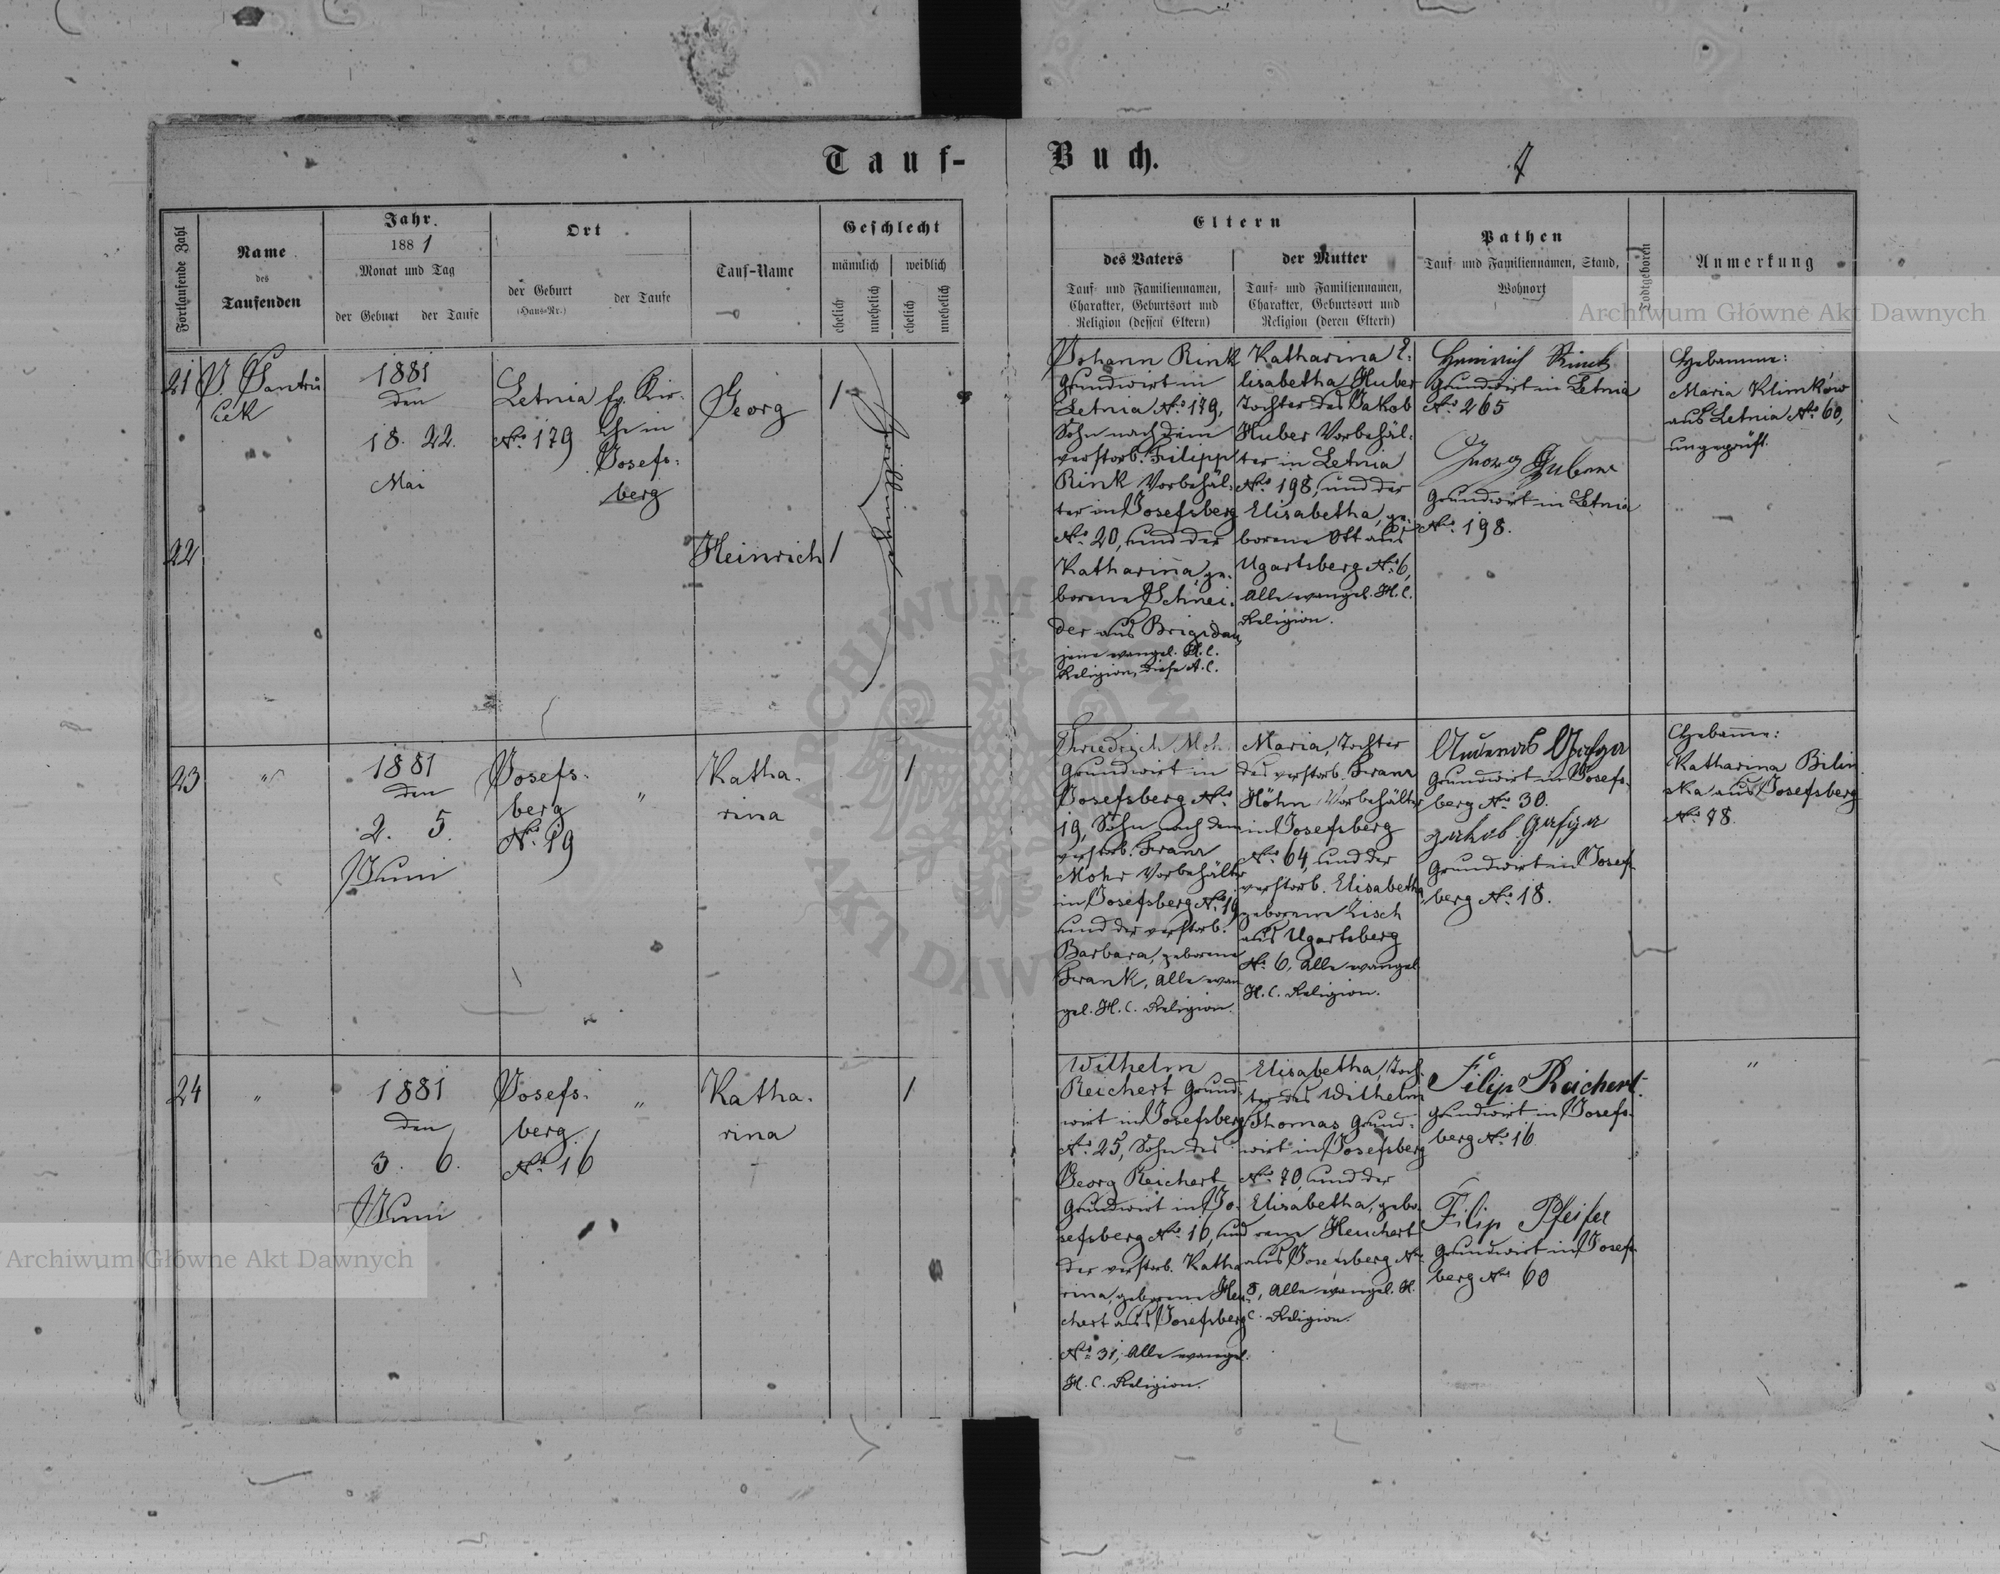 Tauf-Buch.
7
Fortlaufende Zahl
Name
des
Taufenden
Jahr.
1881
Monat und Tag
der Geburt der Taufe
Ort
der Geburt
(Haus-Nr.)
der Taufe
Tauf-Name
Geschlecht
männlich weiblich
ehelich
unehelich
ehelich
unehelich
Eltern
des Vaters
Tauf- und Familiennamen,
Charakter, Geburtsort und
Religion (dessen Eltern)
der Mutter
Tauf- und Familiennamen,
Charakter, Geburtsort und
Religion (deren Eltern)
Pathen
Tauf- und Familiennamen, Stand,
Wohnort
Todtgeboren
Anmerkung
21
J. Jantu
cek
1881
den
18. 22.
Mai
Letnia
No 179
ev. Kir-
che in
Josefs-
berg
Georg
1
Zwillinge
22
Heinrich
1
Johann Rink
Grundwirt in
Letnia No 179,
Sohn nach dem
verstorb. Filipp
Rink Vorbehäl-
ter in Josefsberg
No 20, und der
Katharina, ge-
borene Schnei-
der aus Brigidau,
jene evangel. H. C.
Religion, diese A. C.
Katharina E-
lisabetha Huber
Tochter des Jakob
Huber Vorbehäl-
ter in Letnia
No 198, und der
Elisabetha, ge-
borene Ott aus
Ugartsberg No 6,
Alle evangel. H. C.
Religion.
Heinrich Rink
Grundwirt in Letnia
No 265
Georg Huber
Grundwirt in Letnia
No 198.
Hebamme:
Maria Klimków
aus Letnia No 60,
ungeprüft.
23
"
1881
den
2. 5.
Juni
Josefs-
berg
No 19
"
Katha-
rina
1
Friedrich Mohr
Grundwirt in
Josefsberg No
19, Sohn nach dem
verstorb. Franz
Mohr Vorbehälter
in Josefsberg No 19
und der verstorb.
Barbara, geborene
Frank, Alle evan
gel. H. C. Religion.
Maria, Tochter
des verstorb. Franz
Höhn Vorbehälter
in Josefsberg
No 64, und der
verstorb. Elisabetha,
geborene Zisch
aus Ugartsberg
No 6, Alle evangel.
H. C. Religion.
Grundwirt in Josefs-
berg No 30.
Jakob
Grundwirt in Josefs-
berg No 18.
Hebamme:
Katharina Bilin
ska aus Josefsberg
No 78.
24
"
1881
den
3. 6.
Juni
Josefs-
berg
No 16
"
Katha-
rina
1
Wilhelm
Reichert Grund-
wirt in Josefsberg
No 25, Sohn des
Georg Reichert
Grundwirt in Jo-
sefsberg No 16, und
der verstorb. Katha
rina, geborene Heu-
chert aus Josefsberg
No 31, Alle evangel.
H. C. Religion.
Elisabetha, Toch-
ter des Wilhelm
Thomas Grund-
wirt in Josefsberg
No 70, und der
Elisabetha, gebo-
rene Heuchert
aus Josefsberg No
8, Alle evangel. H.
C. Religion.
Filip Reichert.
Grundwirt in Josefs-
berg No 16
Filip Pfeifer
Grundwirt in Josefs-
berg No 60
"
Archiwum Główne Akt Dawnych
Archiwum Główne Akt Dawnych